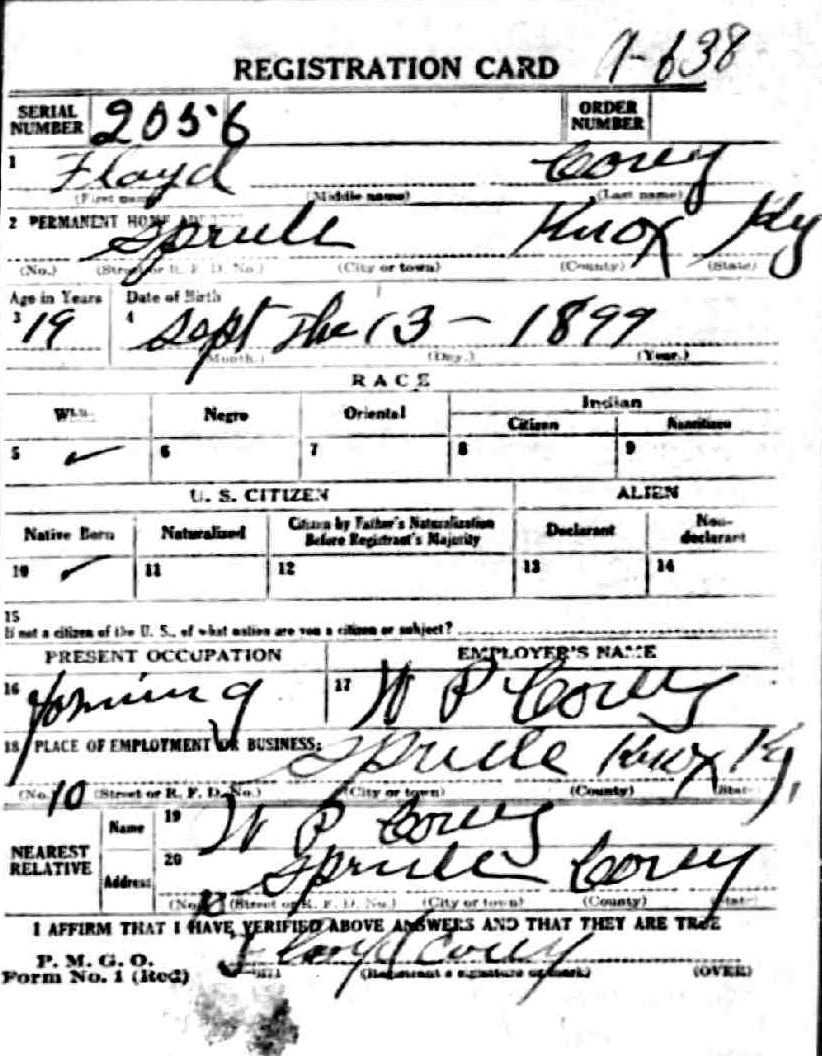 REGISTRATION CARD 9-638
SERIAL NUMBER 2056 ORDER NUMBER
1 Floyd Corey
(First name) (Middle name) (Last name)
2 PERMANENT HOME ADDRESS
Sprule Knox Ky
(No.) (Street or R. F. D. No.) (City or town) (County) (State)
Age in Years Date of Birth
3 19 4 Sept the 13 - 1899
(Month.) (Day.) (Year.)
RACE
White Negro Oriental Indian
Citizen Noncitizen
5 ✓ 6 7 8 9
U. S. CITIZEN ALIEN
Native Born Naturalized Citizen by Father's Naturalization Before Registrant's Majority Declarant Non-declarant
10 ✓ 11 12 13 14
15
If not a citizen of the U. S., of what nation are you a citizen or subject?
PRESENT OCCUPATION EMPLOYER'S NAME
16 17 W P Corey
18 PLACE OF EMPLOYMENT OR BUSINESS:
Sprule Knox Ky,
(No.) (Street or R. F. D. No.) (City or town) (County) (State)
NEAREST RELATIVE Name 19 W P Corey
Address 20 Sprule Corey
(No.) (Street or R. F. D. No.) (City or town) (County) (State)
I AFFIRM THAT I HAVE VERIFIED ABOVE ANSWERS AND THAT THEY ARE TRUE
P. M. G. O.
Form No. 1 (Red) Floyd Corey
(Registrant's signature or mark) (OVER)